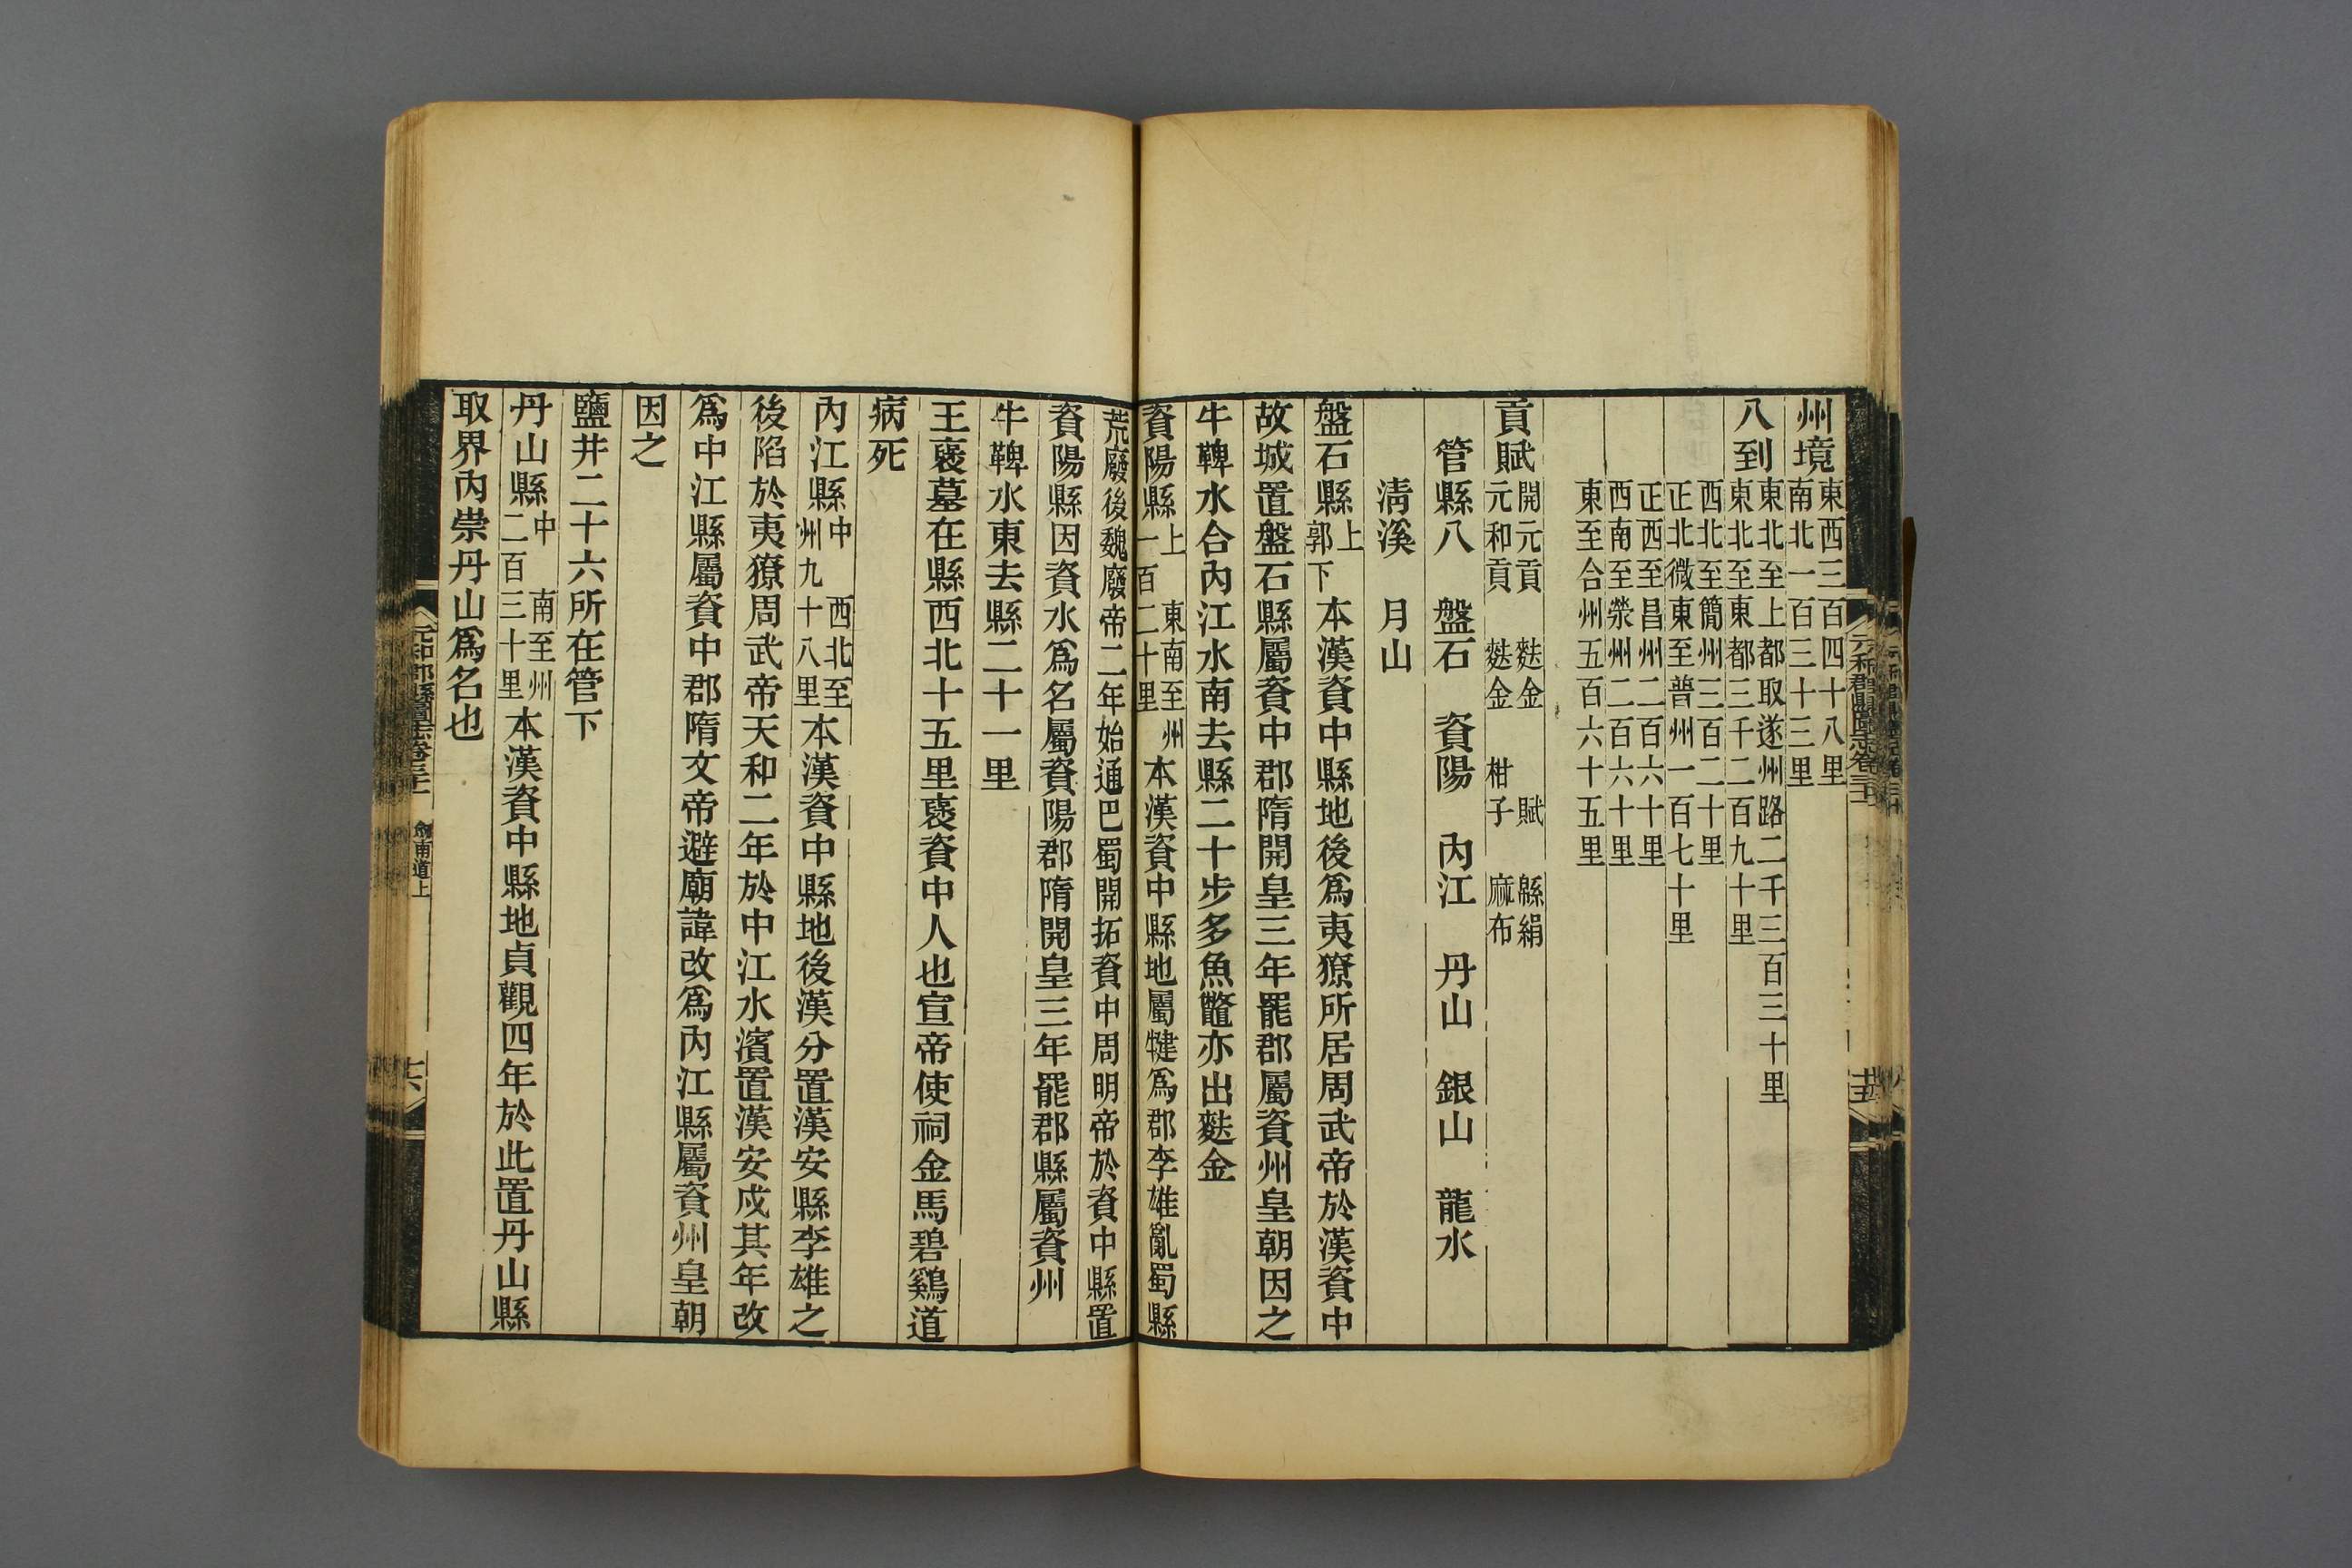 州境東西三百四十八里
南北一百三十三里
八到東北至上都取遂州路二千三百三十里
東北至東都三千二百九十里
西北至簡州三百二十里
正北微東至普州一百七十里
正西至昌州二百六十里
西南至榮州二百六十里
東至合州五百六十五里
貢賦開元貢 麩金 賦 緜絹
元和貢 麩金 柑子 麻布
管縣八 盤石 資陽 內江 丹山 銀山 龍水
清溪 月山
盤石縣上郭下 本漢資中縣地後爲夷獠所居周武帝於漢資中
故城置盤石縣屬資中郡隋開皇三年罷郡屬資州皇朝因之
牛鞞水合內江水南去縣二十步多魚鼈亦出麩金
資陽縣上 東南至州一百二十里 本漢資中縣地屬犍爲郡李雄亂蜀縣
荒廢後魏廢帝二年始通巴蜀開拓資中周明帝於資中縣置
資陽縣因資水爲名屬資陽郡隋開皇三年罷郡縣屬資州
牛鞞水東去縣二十一里
王襃墓在縣西北十五里襃資中人也宣帝使祠金馬碧鷄道
病死
內江縣中 西北至州九十八里 本漢資中縣地後漢分置漢安縣李雄之
後陷於夷獠周武帝天和二年於中江水濱置漢安戍其年改
爲中江縣屬資中郡隋文帝避廟諱改爲內江縣屬資州皇朝
因之
鹽井二十六所在管下
丹山縣中 南至州二百三十里 本漢資中縣地貞觀四年於此置丹山縣
取界內崇丹山爲名也
元和郡縣圖志卷三十一 劍南道上
十六
元和郡縣圖志卷三十一
十五